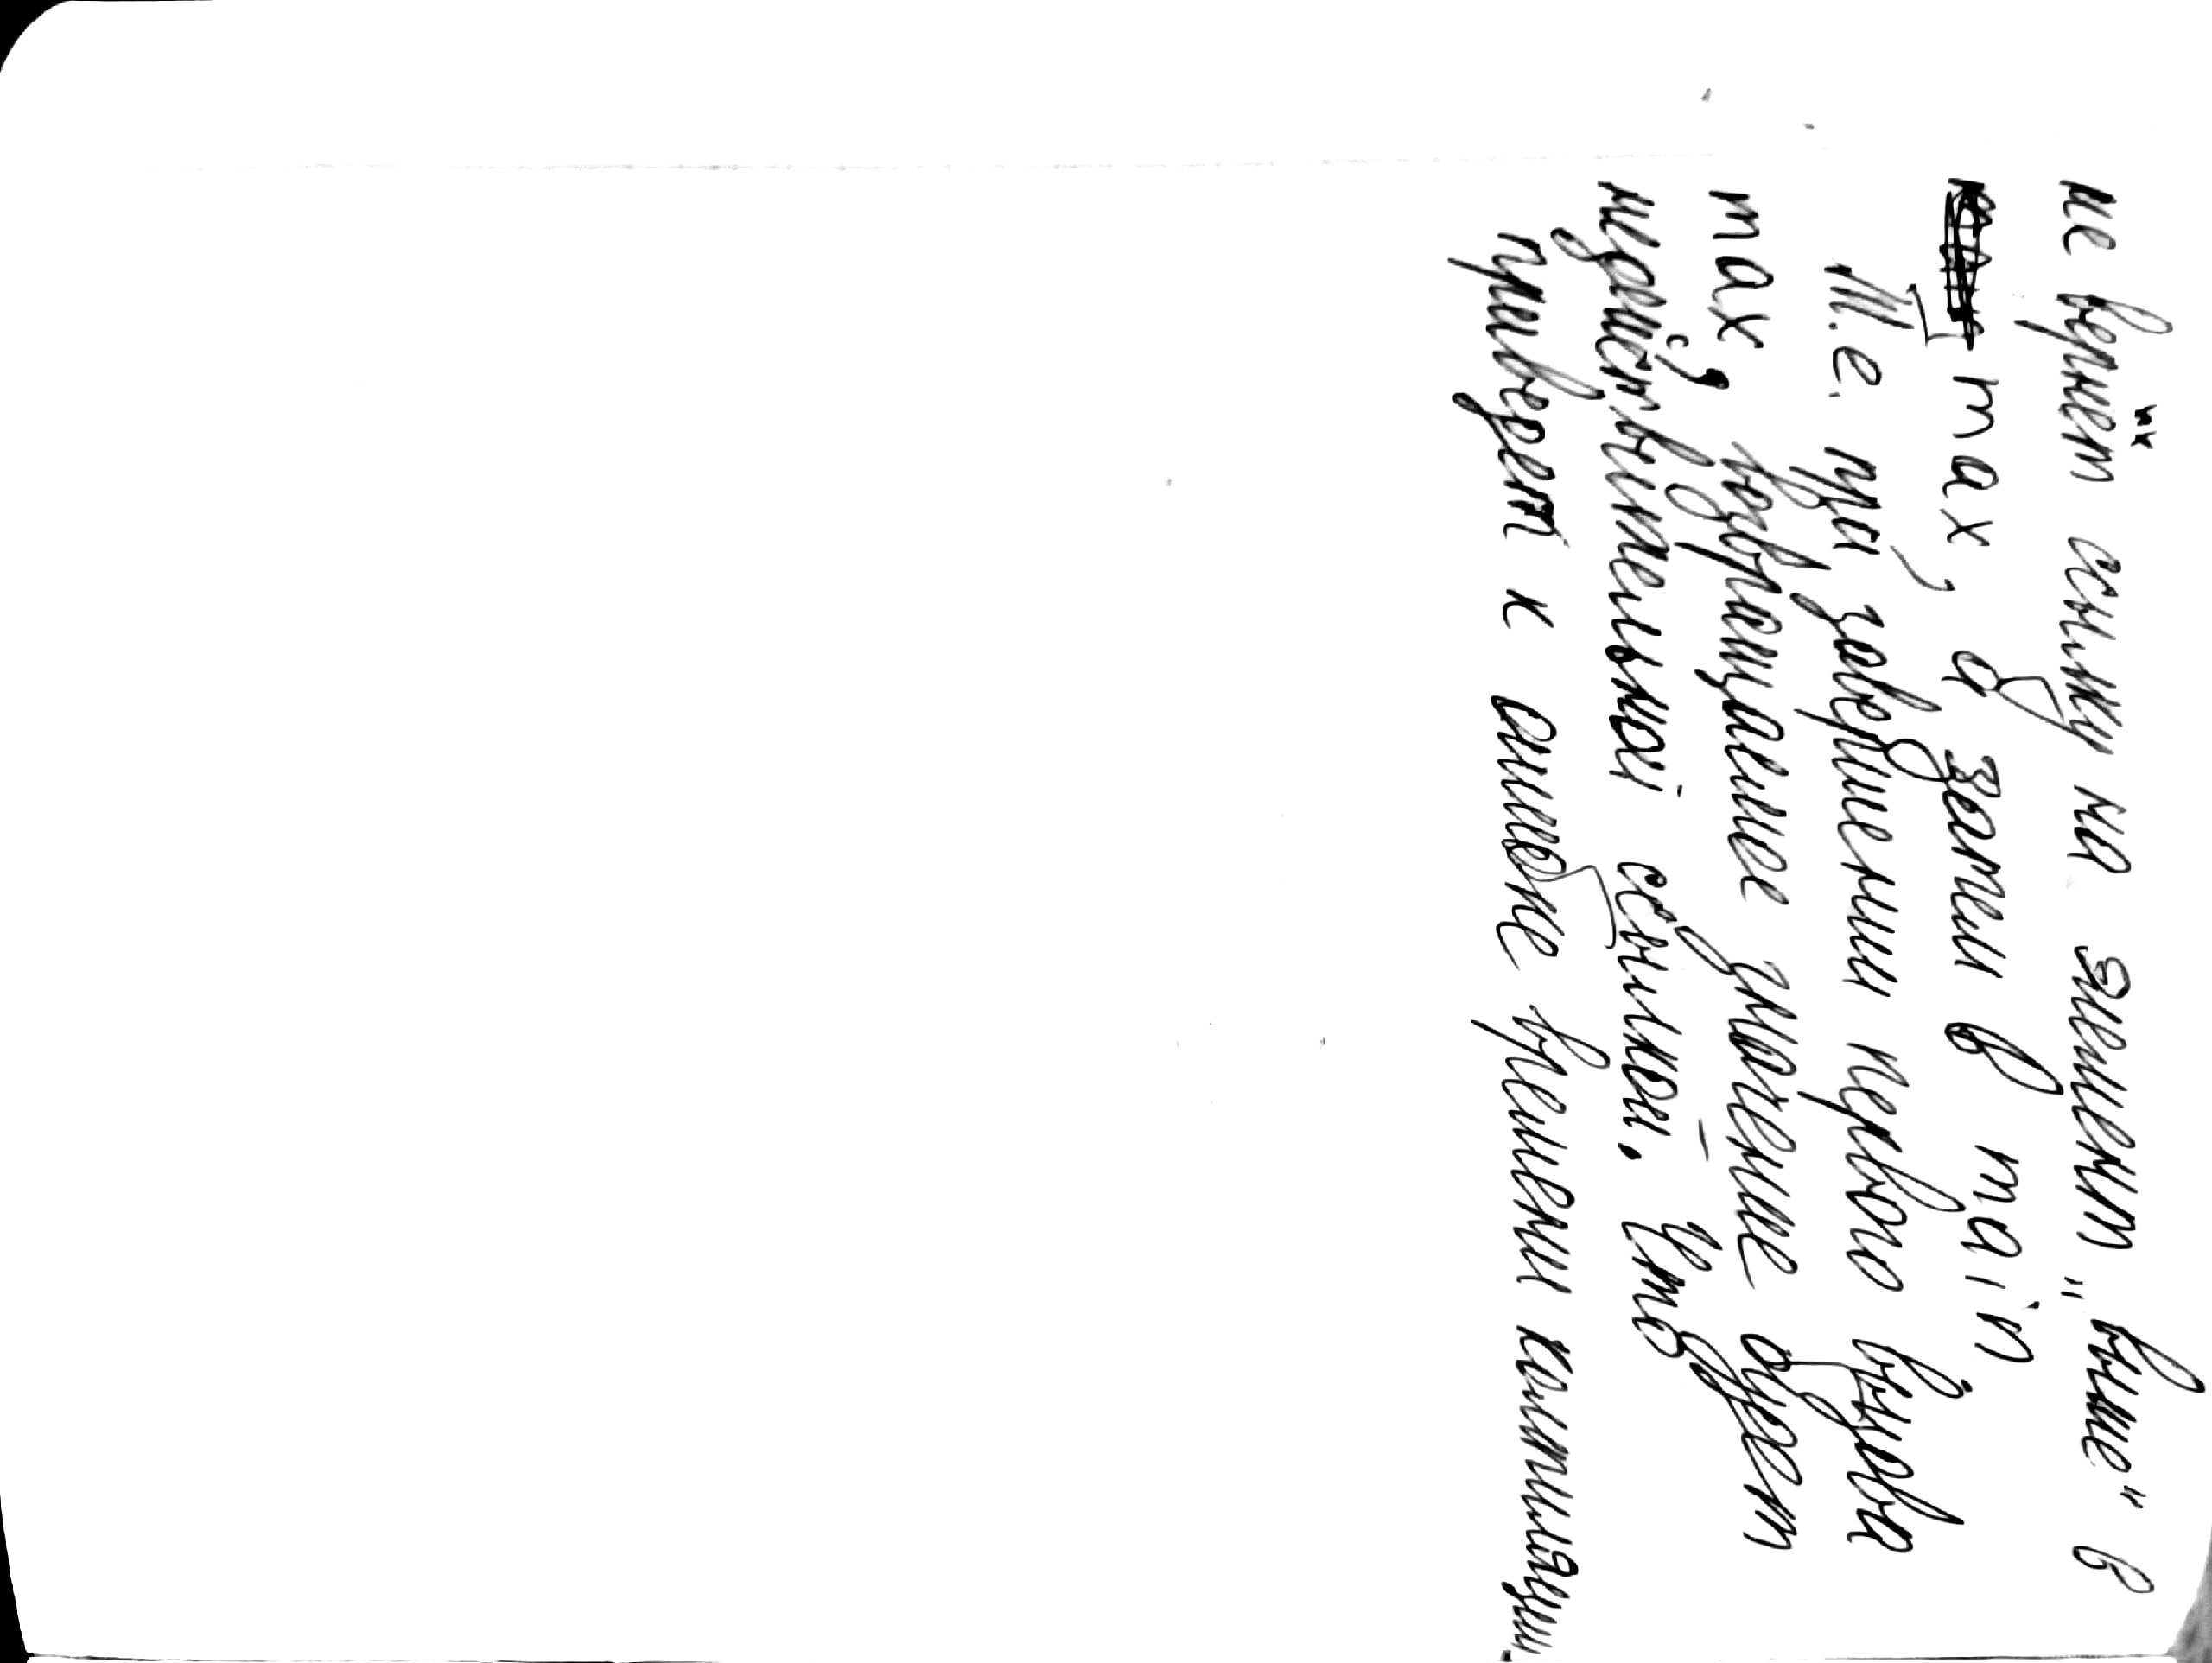 не вернёт ссылку на элемент „выше" в
max, а затем в main
Т.е. при завершении первого вызова
max, возвращаемое значение будет
недействительной ссылкой. Что
приведет к ошибке времени компиляции.